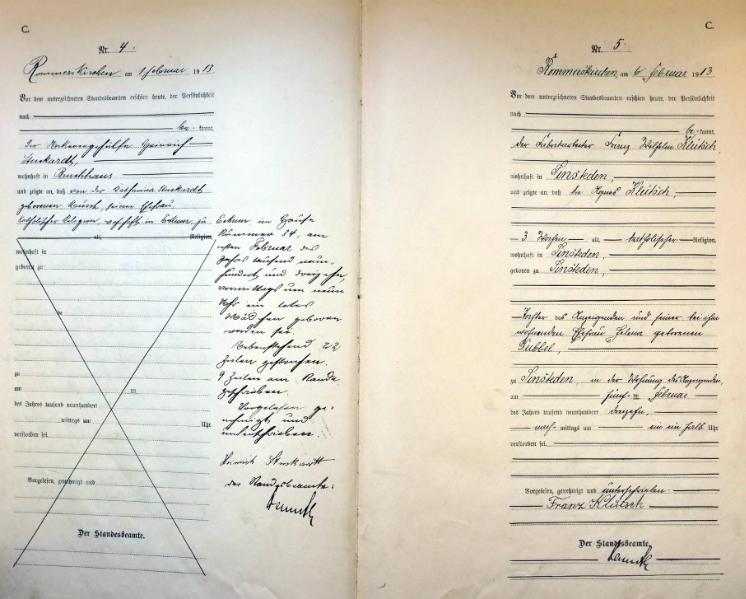 C.
Nr. 4.
Rommerskirchen am 1 Februar 1913
Vor dem unterzeichneten Standesbeamten erschien heute, der Persönlichkeit
nach
be- kannt,
der Heinrich
wohnhaft in
und zeigte an, daß von der
geborenen seiner Ehefrau,
katholischer Religion, wohnhaft in Eckum, zu
alt, Religion,
wohnhaft in
geboren zu
zu
am
des Jahres tausend neunhundert
mittags um Uhr
verstorben sei.
Vorgelesen, genehmigt und
Der Standesbeamte.
Eckum im Hause
Nummer 54, am
Februar des
Jahres tausend neun-
hundert und dreizehn,
vormittags um neun
Uhr ein totes
Mädchen geboren
worden sei.
Nebenstehend 22
Zeilen gestrichen.
9 Zeilen am Rande
geschrieben.
Vorgelesen, ge-
nehmigt und
unterschrieben.
Heinrich
der Standesbeamte.
C.
Nr. 5
Rommerskirchen am 6 Februar 1913
Vor dem unterzeichneten Standesbeamten erschien heute, der Persönlichkeit
nach
be- kannt,
der Fabrikarbeiter Franz Wilhelm Klütsch,
wohnhaft in Sinsteden,
und zeigte an, daß die Agnes Klütsch,
3 Wochen alt, katholischer Religion,
wohnhaft in Sinsteden,
geboren zu Sinsteden,
Tochter des Anzeigenden und seiner bei ihm
wohnenden Ehefrau Helena geborenen
zu Sinsteden, in der Wohnung des Anzeigenden,
am fünften Februar
des Jahres tausend neunhundert dreizehn,
nach- mittags um ein ein halb Uhr
verstorben sei.
Vorgelesen, genehmigt und unterschrieben
Franz Klütsch
Der Standesbeamte.